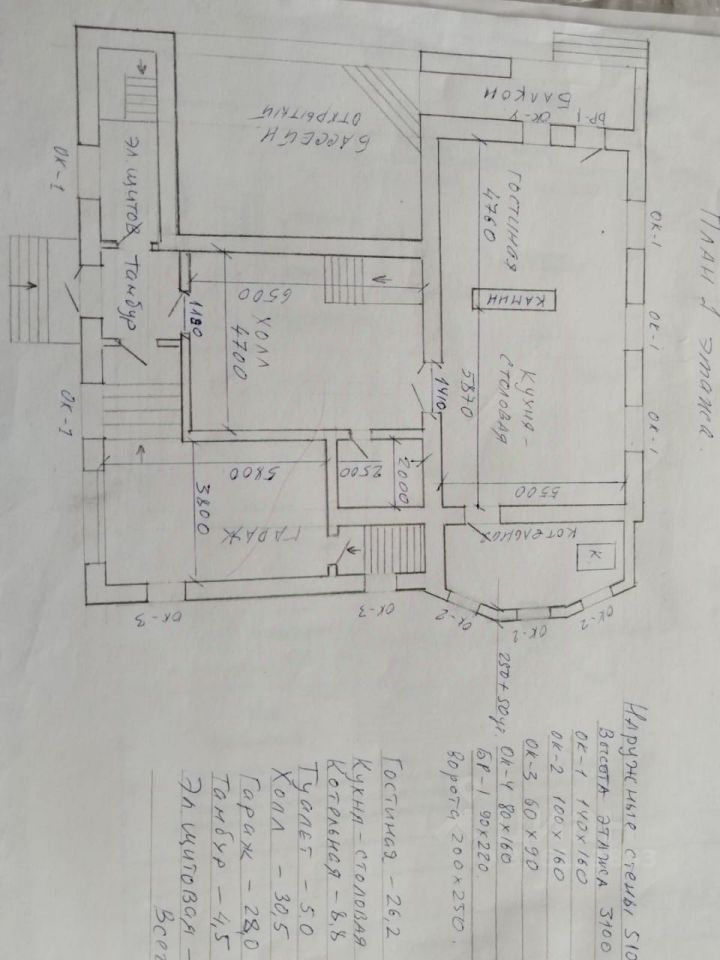 План 1 этажа.
ОК-1
ОК-1
ОК-1
БАЛКОН
БР-1
ОК-4
ГОСТИНАЯ
4760
КАМИН
КУХНЯ-
СТОЛОВАЯ
5870
5500
1410
КОТЕЛЬНАЯ
К.
ОК-2
ОК-2
ОК-2
БАССЕЙН
ОТКРЫТЫЙ
ХОЛЛ
4700
6500
1190
2500
2000
ЭЛ.ЩИТОВ
Тамбур
ОК-1
ОК-1
ГАРАЖ
3800
5800
ОК-3
ОК-3
Наружные стены 510
Высота этажа 3100
ОК-1 140х160
ОК-2 100х160
ОК-3 60х90
ОК-4 80х160
БР-1 90х220.
Ворота 200х250.
250+50 ут.
Гостиная - 26,2
Кухня-столовая
Котельная - 8,8
Туалет - 5,0
Холл - 30,5
Гараж - 28,0
Тамбур - 4,5
Эл.щитовая -
Всег